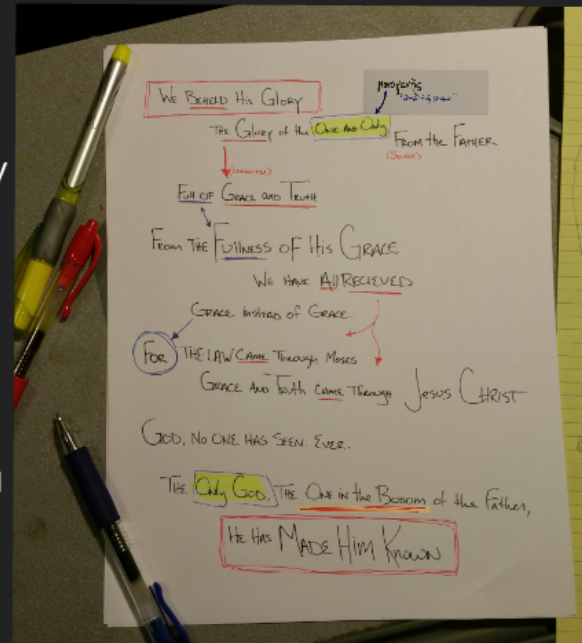 We Behold His Glory
Monogenēs
The Glory of the One and Only From the Father
(Source)
Full of Grace and Truth
From the Fullness of His Grace
We have All Recieved
Grace instead of Grace.
For The Law Came Through Moses
Grace and Truth came Through Jesus Christ
God, no one has seen. Ever.
The Only God, The One in the Bosom of the Father,
He Has Made Him Known